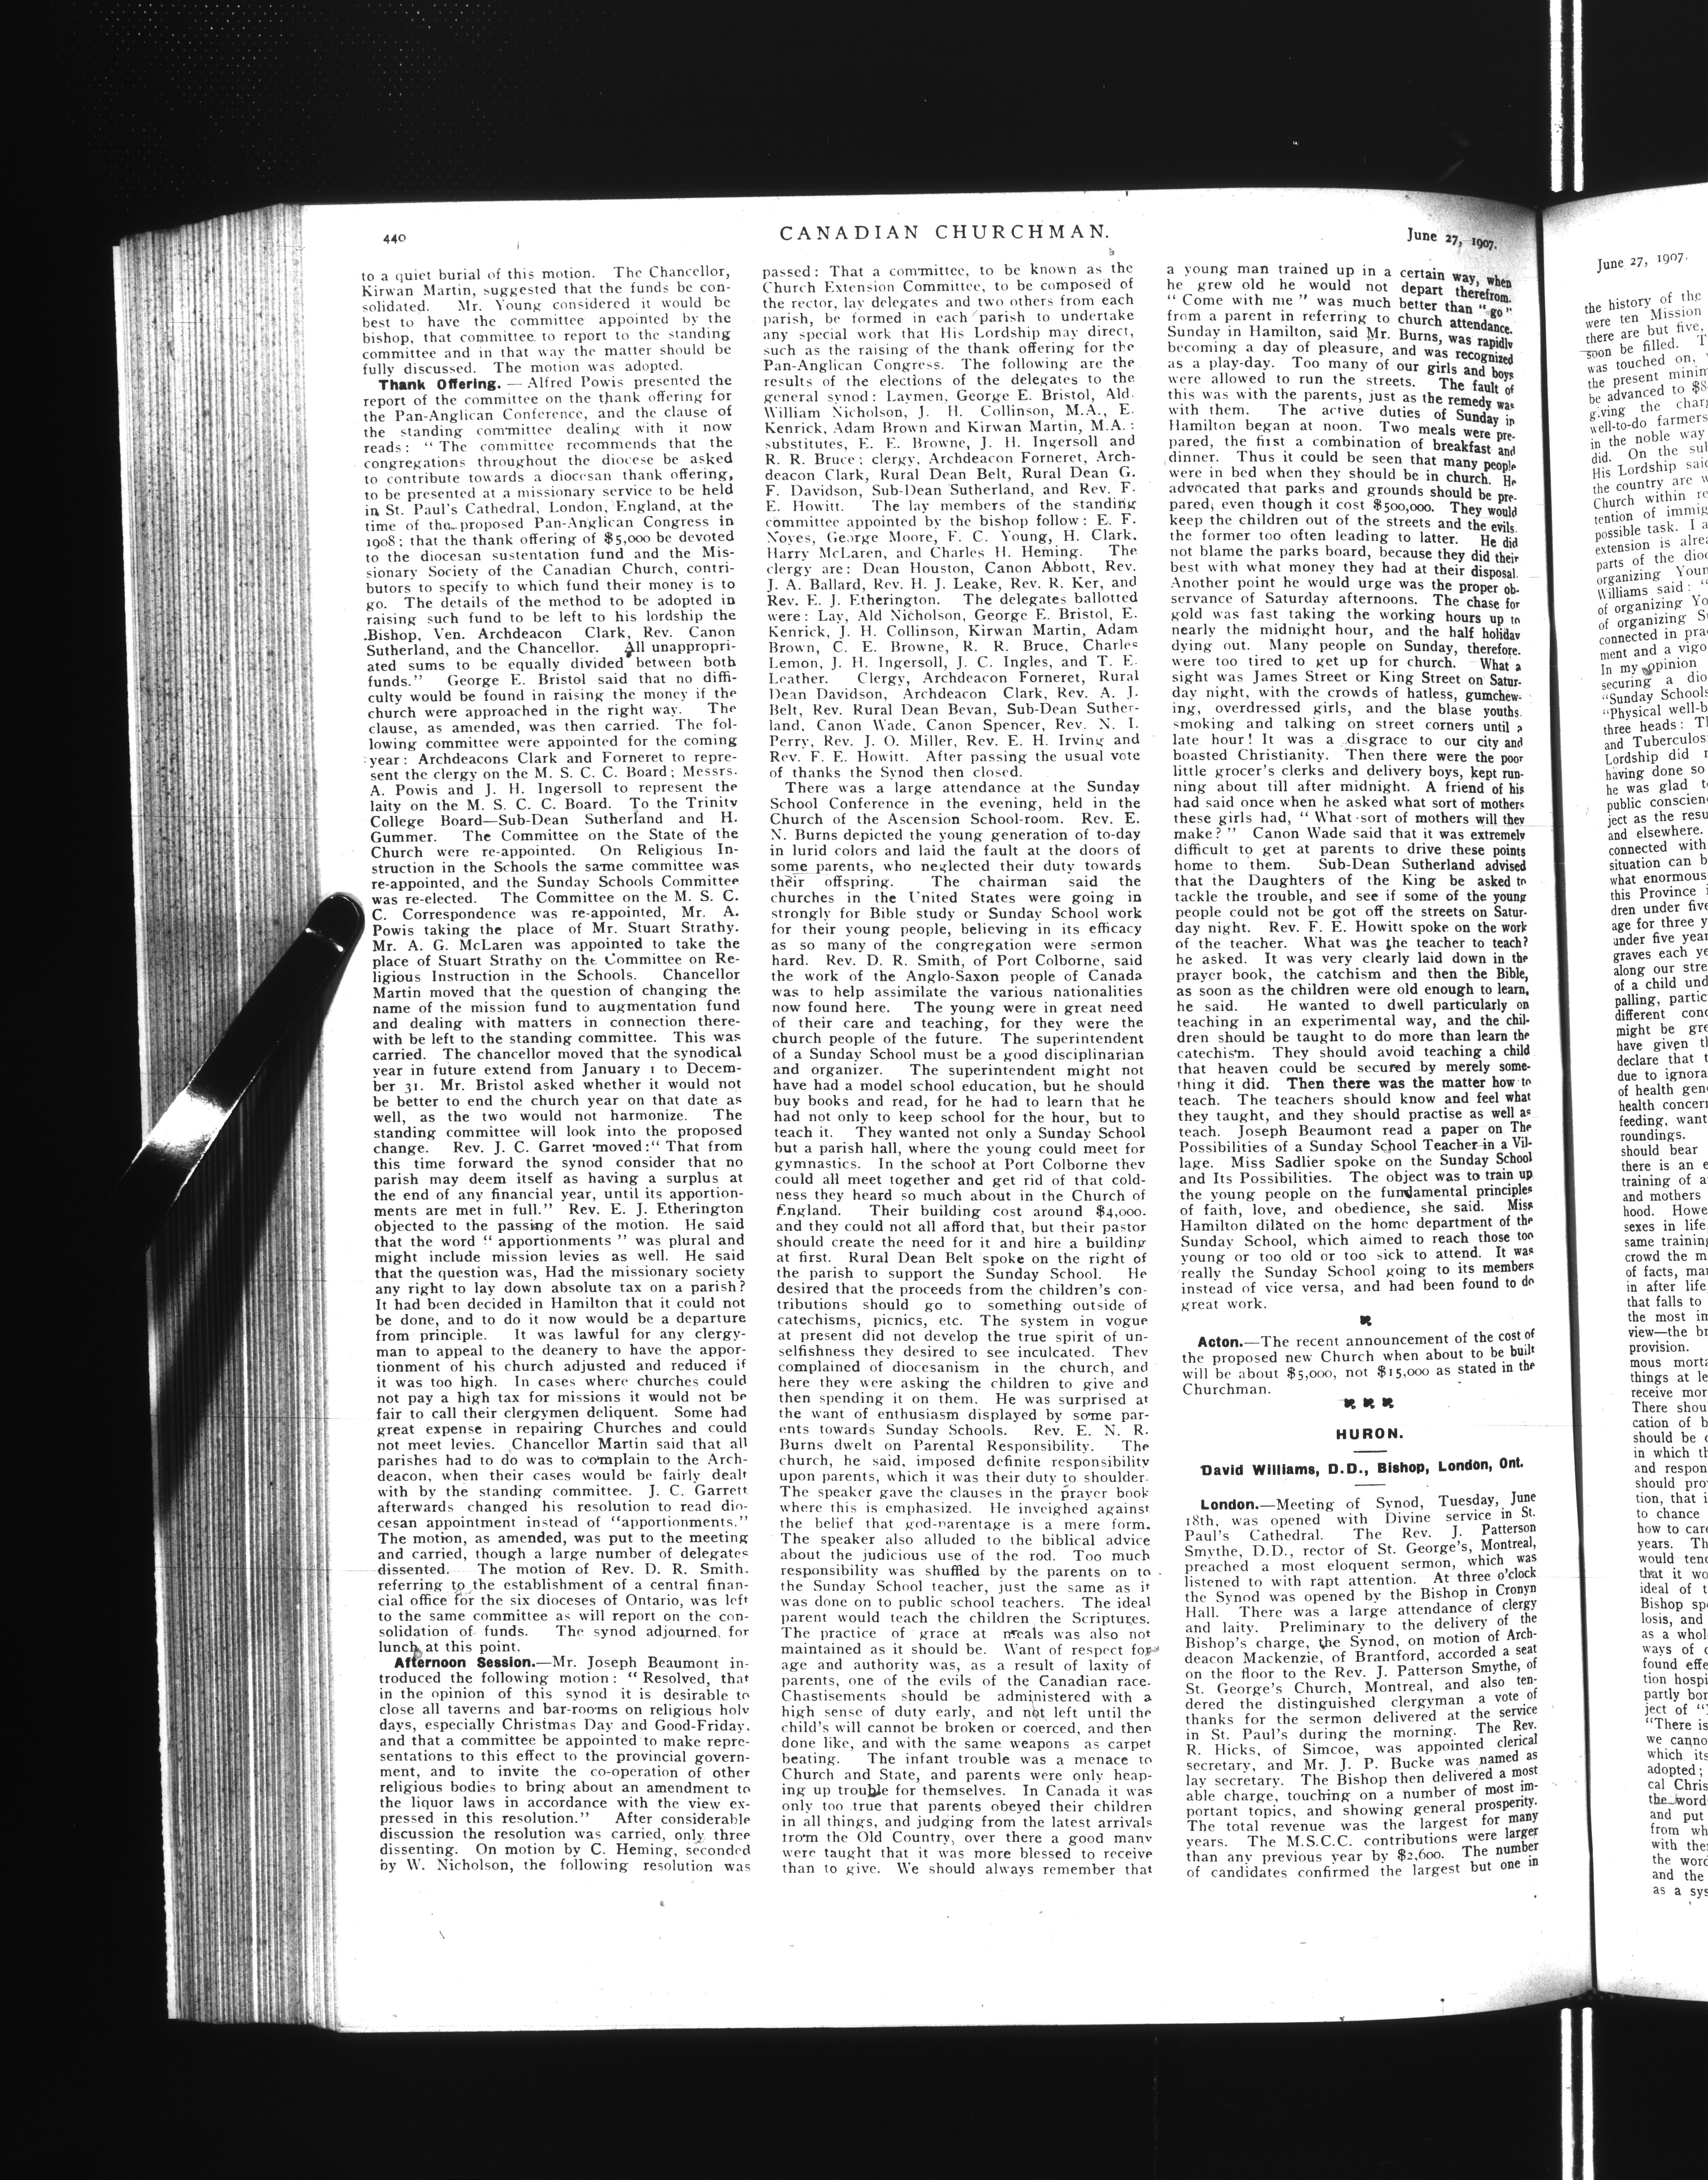 440
CANADIAN CHURCHMAN.
June 27, 1907.
to a quiet burial of this motion. The Chancellor,
Kirwan Martin, suggested that the funds be con-
solidated. Mr. Young considered it would be
best to have the committee appointed by the
bishop, that committee to report to the standing
committee and in that way the matter should be
fully discussed. The motion was adopted.
Thank Offering. — Alfred Powis presented the
report of the committee on the thank offering for
the Pan-Anglican Conference, and the clause of
the standing committee dealing with it now
reads: “The committee recommends that the
congregations throughout the diocese be asked
to contribute towards a diocesan thank offering,
to be presented at a missionary service to be held
in St. Paul's Cathedral, London, England, at the
time of the proposed Pan-Anglican Congress in
1908; that the thank offering of $5,000 be devoted
to the diocesan sustentation fund and the Mis-
sionary Society of the Canadian Church, contri-
butors to specify to which fund their money is to
go. The details of the method to be adopted in
raising such fund to be left to his lordship the
Bishop, Ven. Archdeacon Clark, Rev. Canon
Sutherland, and the Chancellor. All unappropri-
ated sums to be equally divided between both
funds.” George E. Bristol said that no diffi-
culty would be found in raising the money if the
church were approached in the right way. The
clause, as amended, was then carried. The fol-
lowing committee were appointed for the coming
year: Archdeacons Clark and Forneret to repre-
sent the clergy on the M. S. C. C. Board; Messrs.
A. Powis and J. H. Ingersoll to represent the
laity on the M. S. C. C. Board. To the Trinity
College Board—Sub-Dean Sutherland and H.
Gummer. The Committee on the State of the
Church were re-appointed. On Religious In-
struction in the Schools the same committee was
re-appointed, and the Sunday Schools Committee
was re-elected. The Committee on the M. S. C.
C. Correspondence was re-appointed, Mr. A.
Powis taking the place of Mr. Stuart Strathy.
Mr. A. G. McLaren was appointed to take the
place of Stuart Strathy on the Committee on Re-
ligious Instruction in the Schools. Chancellor
Martin moved that the question of changing the
name of the mission fund to augmentation fund
and dealing with matters in connection there-
with be left to the standing committee. This was
carried. The chancellor moved that the synodical
year in future extend from January 1 to Decem-
ber 31. Mr. Bristol asked whether it would not
be better to end the church year on that date as
well, as the two would not harmonize. The
standing committee will look into the proposed
change. Rev. J. C. Garret moved:“ That from
this time forward the synod consider that no
parish may deem itself as having a surplus at
the end of any financial year, until its apportion-
ments are met in full.” Rev. E. J. Etherington
objected to the passing of the motion. He said
that the word “ apportionments ” was plural and
might include mission levies as well. He said
that the question was, Had the missionary society
any right to lay down absolute tax on a parish?
It had been decided in Hamilton that it could not
be done, and to do it now would be a departure
from principle. It was lawful for any clergy-
man to appeal to the deanery to have the appor-
tionment of his church adjusted and reduced if
it was too high. In cases where churches could
not pay a high tax for missions it would not be
fair to call their clergymen deliquent. Some had
great expense in repairing Churches and could
not meet levies. Chancellor Martin said that all
parishes had to do was to complain to the Arch-
deacon, when their cases would be fairly dealt
with by the standing committee. J. C. Garrett
afterwards changed his resolution to read dio-
cesan appointment instead of “apportionments.”
The motion, as amended, was put to the meeting
and carried, though a large number of delegates
dissented. The motion of Rev. D. R. Smith.
referring to the establishment of a central finan-
cial office for the six dioceses of Ontario, was left
to the same committee as will report on the con-
solidation of funds. The synod adjourned for
lunch at this point.
Afternoon Session.—Mr. Joseph Beaumont in-
troduced the following motion: “ Resolved, that
in the opinion of this synod it is desirable to
close all taverns and bar-rooms on religious holy
days, especially Christmas Day and Good-Friday.
and that a committee be appointed to make repre-
sentations to this effect to the provincial govern-
ment, and to invite the co-operation of other
religious bodies to bring about an amendment to
the liquor laws in accordance with the view ex-
pressed in this resolution.” After considerable
discussion the resolution was carried, only three
dissenting. On motion by C. Heming, seconded
by W. Nicholson, the following resolution was
passed: That a committee, to be known as the
Church Extension Committee, to be composed of
the rector, lay delegates and two others from each
parish, be formed in each parish to undertake
any special work that His Lordship may direct,
such as the raising of the thank offering for the
Pan-Anglican Congress. The following are the
results of the elections of the delegates to the
general synod: Laymen, George E. Bristol, Ald.
William Nicholson, J. H. Collinson, M.A., E.
Kenrick, Adam Brown and Kirwan Martin, M.A.:
substitutes, E. E. Browne, J. H. Ingersoll and
R. R. Bruce; clergy, Archdeacon Forneret, Arch-
deacon Clark, Rural Dean Belt, Rural Dean G.
F. Davidson, Sub-Dean Sutherland, and Rev. F.
E. Howitt. The lay members of the standing
committee appointed by the bishop follow: E. F.
Noyes, George Moore, F. C. Young, H. Clark.
Harry McLaren, and Charles H. Heming. The
clergy are: Dean Houston, Canon Abbott, Rev.
J. A. Ballard, Rev. H. J. Leake, Rev. R. Ker, and
Rev. E. J. Etherington. The delegates ballotted
were: Lay, Ald Nicholson, George E. Bristol, E.
Kenrick, J. H. Collinson, Kirwan Martin, Adam
Brown, C. E. Browne, R. R. Bruce, Charles
Lemon, J. H. Ingersoll, J. C. Ingles, and T. E.
Leather. Clergy, Archdeacon Forneret, Rural
Dean Davidson, Archdeacon Clark, Rev. A. J.
Belt, Rev. Rural Dean Bevan, Sub-Dean Suther-
land, Canon Wade, Canon Spencer, Rev. N. I.
Perry, Rev. J. O. Miller, Rev. E. H. Irving and
Rev. F. E. Howitt. After passing the usual vote
of thanks the Synod then closed.
There was a large attendance at the Sunday
School Conference in the evening, held in the
Church of the Ascension School-room. Rev. E.
N. Burns depicted the young generation of to-day
in lurid colors and laid the fault at the doors of
some parents, who neglected their duty towards
their offspring. The chairman said the
churches in the United States were going in
strongly for Bible study or Sunday School work
for their young people, believing in its efficacy
as so many of the congregation were sermon
hard. Rev. D. R. Smith, of Port Colborne, said
the work of the Anglo-Saxon people of Canada
was to help assimilate the various nationalities
now found here. The young were in great need
of their care and teaching, for they were the
church people of the future. The superintendent
of a Sunday School must be a good disciplinarian
and organizer. The superintendent might not
have had a model school education, but he should
buy books and read, for he had to learn that he
had not only to keep school for the hour, but to
teach it. They wanted not only a Sunday School
but a parish hall, where the young could meet for
gymnastics. In the school at Port Colborne they
could all meet together and get rid of that cold-
ness they heard so much about in the Church of
England. Their building cost around $4,000.
and they could not all afford that, but their pastor
should create the need for it and hire a building
at first. Rural Dean Belt spoke on the right of
the parish to support the Sunday School. He
desired that the proceeds from the children's con-
tributions should go to something outside of
catechisms, picnics, etc. The system in vogue
at present did not develop the true spirit of un-
selfishness they desired to see inculcated. They
complained of diocesanism in the church, and
here they were asking the children to give and
then spending it on them. He was surprised at
the want of enthusiasm displayed by some par-
ents towards Sunday Schools. Rev. E. N. R.
Burns dwelt on Parental Responsibility. The
church, he said, imposed definite responsibility
upon parents, which it was their duty to shoulder.
The speaker gave the clauses in the prayer book
where this is emphasized. He inveighed against
the belief that god-parentage is a mere form.
The speaker also alluded to the biblical advice
about the judicious use of the rod. Too much
responsibility was shuffled by the parents on to
the Sunday School teacher, just the same as it
was done on to public school teachers. The ideal
parent would teach the children the Scriptures.
The practice of grace at meals was also not
maintained as it should be. Want of respect for
age and authority was, as a result of laxity of
parents, one of the evils of the Canadian race.
Chastisements should be administered with a
high sense of duty early, and not left until the
child's will cannot be broken or coerced, and then
done like, and with the same weapons as carpet
beating. The infant trouble was a menace to
Church and State, and parents were only heap-
ing up trouble for themselves. In Canada it was
only too true that parents obeyed their children
in all things, and judging from the latest arrivals
from the Old Country, over there a good many
were taught that it was more blessed to receive
than to give. We should always remember that
a young man trained up in a certain way, when
he grew old he would not depart therefrom.
“ Come with me ” was much better than “ go ”
from a parent in referring to church attendance.
Sunday in Hamilton, said Mr. Burns, was rapidly
becoming a day of pleasure, and was recognized
as a play-day. Too many of our girls and boys
were allowed to run the streets. The fault of
this was with the parents, just as the remedy was
with them. The active duties of Sunday in
Hamilton began at noon. Two meals were pre-
pared, the first a combination of breakfast and
dinner. Thus it could be seen that many people
were in bed when they should be in church. He
advocated that parks and grounds should be pre-
pared, even though it cost $500,000. They would
keep the children out of the streets and the evils.
the former too often leading to latter. He did
not blame the parks board, because they did their
best with what money they had at their disposal.
Another point he would urge was the proper ob-
servance of Saturday afternoons. The chase for
gold was fast taking the working hours up to
nearly the midnight hour, and the half holiday
dying out. Many people on Sunday, therefore.
were too tired to get up for church. What a
sight was James Street or King Street on Satur-
day night, with the crowds of hatless, gumchew-
ing, overdressed girls, and the blase youths.
smoking and talking on street corners until a
late hour! It was a disgrace to our city and
boasted Christianity. Then there were the poor
little grocer's clerks and delivery boys, kept run-
ning about till after midnight. A friend of his
had said once when he asked what sort of mothers
these girls had, “ What sort of mothers will they
make? ” Canon Wade said that it was extremely
difficult to get at parents to drive these points
home to them. Sub-Dean Sutherland advised
that the Daughters of the King be asked to
tackle the trouble, and see if some of the young
people could not be got off the streets on Satur-
day night. Rev. F. E. Howitt spoke on the work
of the teacher. What was the teacher to teach?
he asked. It was very clearly laid down in the
prayer book, the catchism and then the Bible,
as soon as the children were old enough to learn,
he said. He wanted to dwell particularly on
teaching in an experimental way, and the chil-
dren should be taught to do more than learn the
catechism. They should avoid teaching a child
that heaven could be secured by merely some-
thing it did. Then there was the matter how to
teach. The teachers should know and feel what
they taught, and they should practise as well as
teach. Joseph Beaumont read a paper on The
Possibilities of a Sunday School Teacher in a Vil-
lage. Miss Sadlier spoke on the Sunday School
and Its Possibilities. The object was to train up
the young people on the fundamental principles
of faith, love, and obedience, she said. Miss
Hamilton dilated on the home department of the
Sunday School, which aimed to reach those too
young or too old or too sick to attend. It was
really the Sunday School going to its members
instead of vice versa, and had been found to do
great work.
Acton.—The recent announcement of the cost of
the proposed new Church when about to be built
will be about $5,000, not $15,000 as stated in the
Churchman.
HURON.
David Williams, D.D., Bishop, London, Ont.
London.—Meeting of Synod, Tuesday, June
18th, was opened with Divine service in St.
Paul's Cathedral. The Rev. J. Patterson
Smythe, D.D., rector of St. George's, Montreal,
preached a most eloquent sermon, which was
listened to with rapt attention. At three o'clock
the Synod was opened by the Bishop in Cronyn
Hall. There was a large attendance of clergy
and laity. Preliminary to the delivery of the
Bishop's charge, the Synod, on motion of Arch-
deacon Mackenzie, of Brantford, accorded a seat
on the floor to the Rev. J. Patterson Smythe, of
St. George's Church, Montreal, and also ten-
dered the distinguished clergyman a vote of
thanks for the sermon delivered at the service
in St. Paul's during the morning. The Rev.
R. Hicks, of Simcoe, was appointed clerical
secretary, and Mr. J. P. Bucke was named as
lay secretary. The Bishop then delivered a most
able charge, touching on a number of most im-
portant topics, and showing general prosperity.
The total revenue was the largest for many
years. The M.S.C.C. contributions were larger
than any previous year by $2,600. The number
of candidates confirmed the largest but one in
June 27, 1907.
the history of the
were ten Mission
there are but five,
soon be filled.
was touched on,
the present minim
be advanced to $8
giving the char
well-to-do farmers
in the noble way
did. On the su
His Lordship said
the country are
Church within re
tention of immig
possible task. I a
extension is alrea
parts of the dio
organizing Youn
Williams said:
of organizing Yo
of organizing S
connected in pra
ment and a vigo
In my opinion
securing a dio
“Sunday Schools
“Physical well-b
three heads: T
and Tuberculos
Lordship did
having done so
he was glad t
public conscien
ject as the resu
and elsewhere.
connected with
situation can b
what enormous
this Province
dren under five
age for three y
under five year
graves each ye
along our stre
of a child und
palling, partic
different conc
might be gre
have given t
declare that t
due to ignora
of health gen
health concern
feeding, want
roundings.
should bear
there is an e
training of a
and mothers
hood. Howe
sexes in life
same training
crowd the m
of facts, ma
in after life
that falls to
the most im
view—the br
provision.
mous morta
things at le
receive mor
There shou
cation of b
should be
in which th
and respon
should pro
tion, that i
to chance
how to car
years. Th
would tend
that it wo
ideal of t
Bishop sp
losis, and
as a whol
ways of
found effe
tion hospi
partly bor
ject of “
“There is
we canno
which its
adopted;
cal Chris
the word
and put
from wh
with the
the word
and the
as a sys